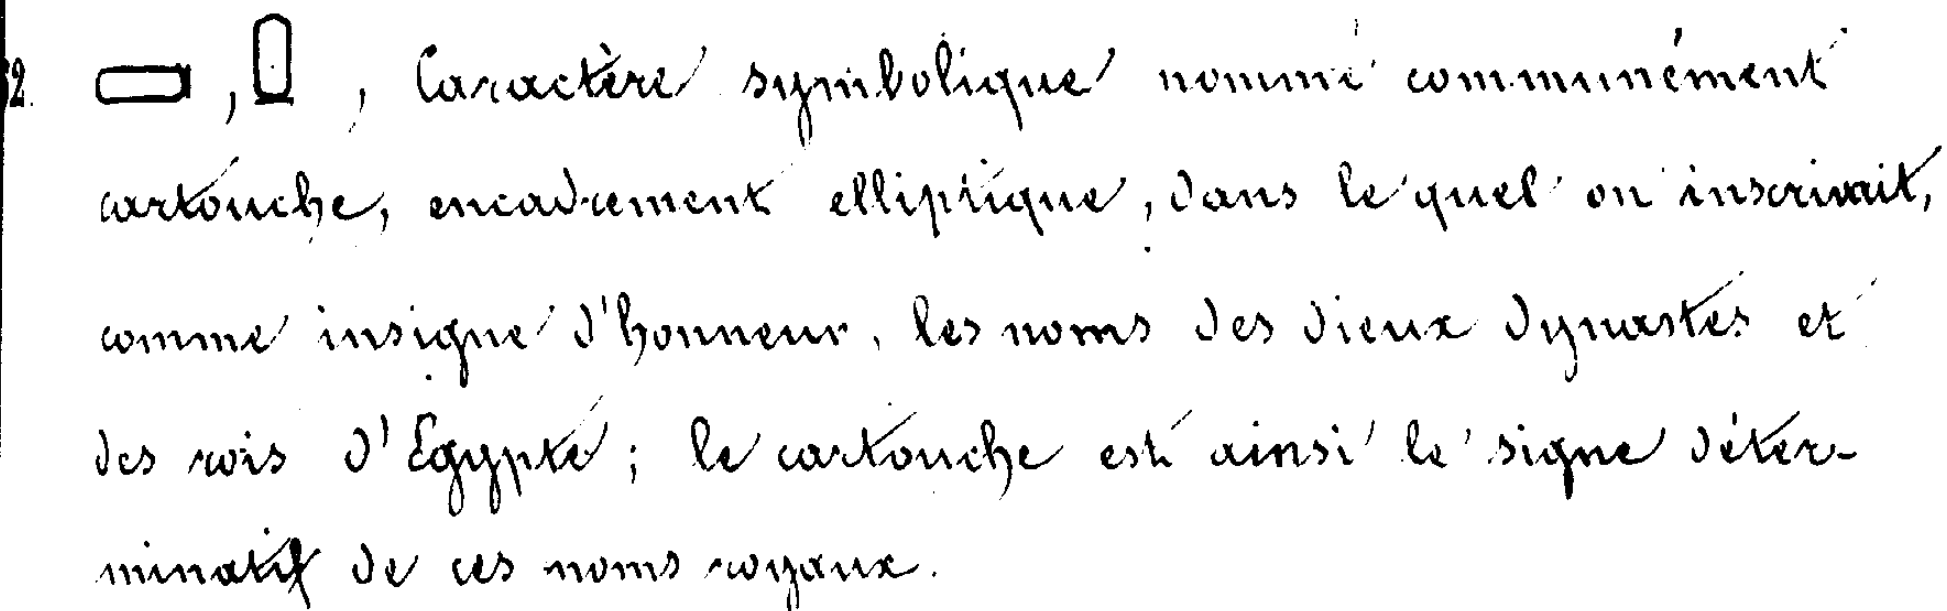 2. 𓍷, 𓍷, Caractère symbolique nommé communément
cartouche, encadrement elliptique, dans le quel on inscrivait,
comme insigne d'honneur, les noms des dieux dynastes et
des rois d'Egypte; le cartouche est ainsi le signe déter-
minatif de ces noms royaux.